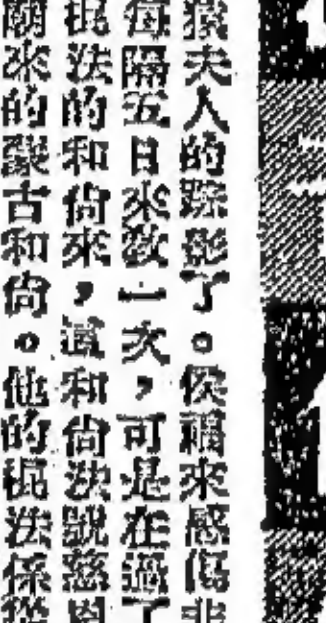 猿夫人的踪影了。侯福來感傷非
每隔五日來教一次，可是在過了
棍法的和尚來，這和尚決說慈恩
廟來的蒙古和尚。他的棍法係從